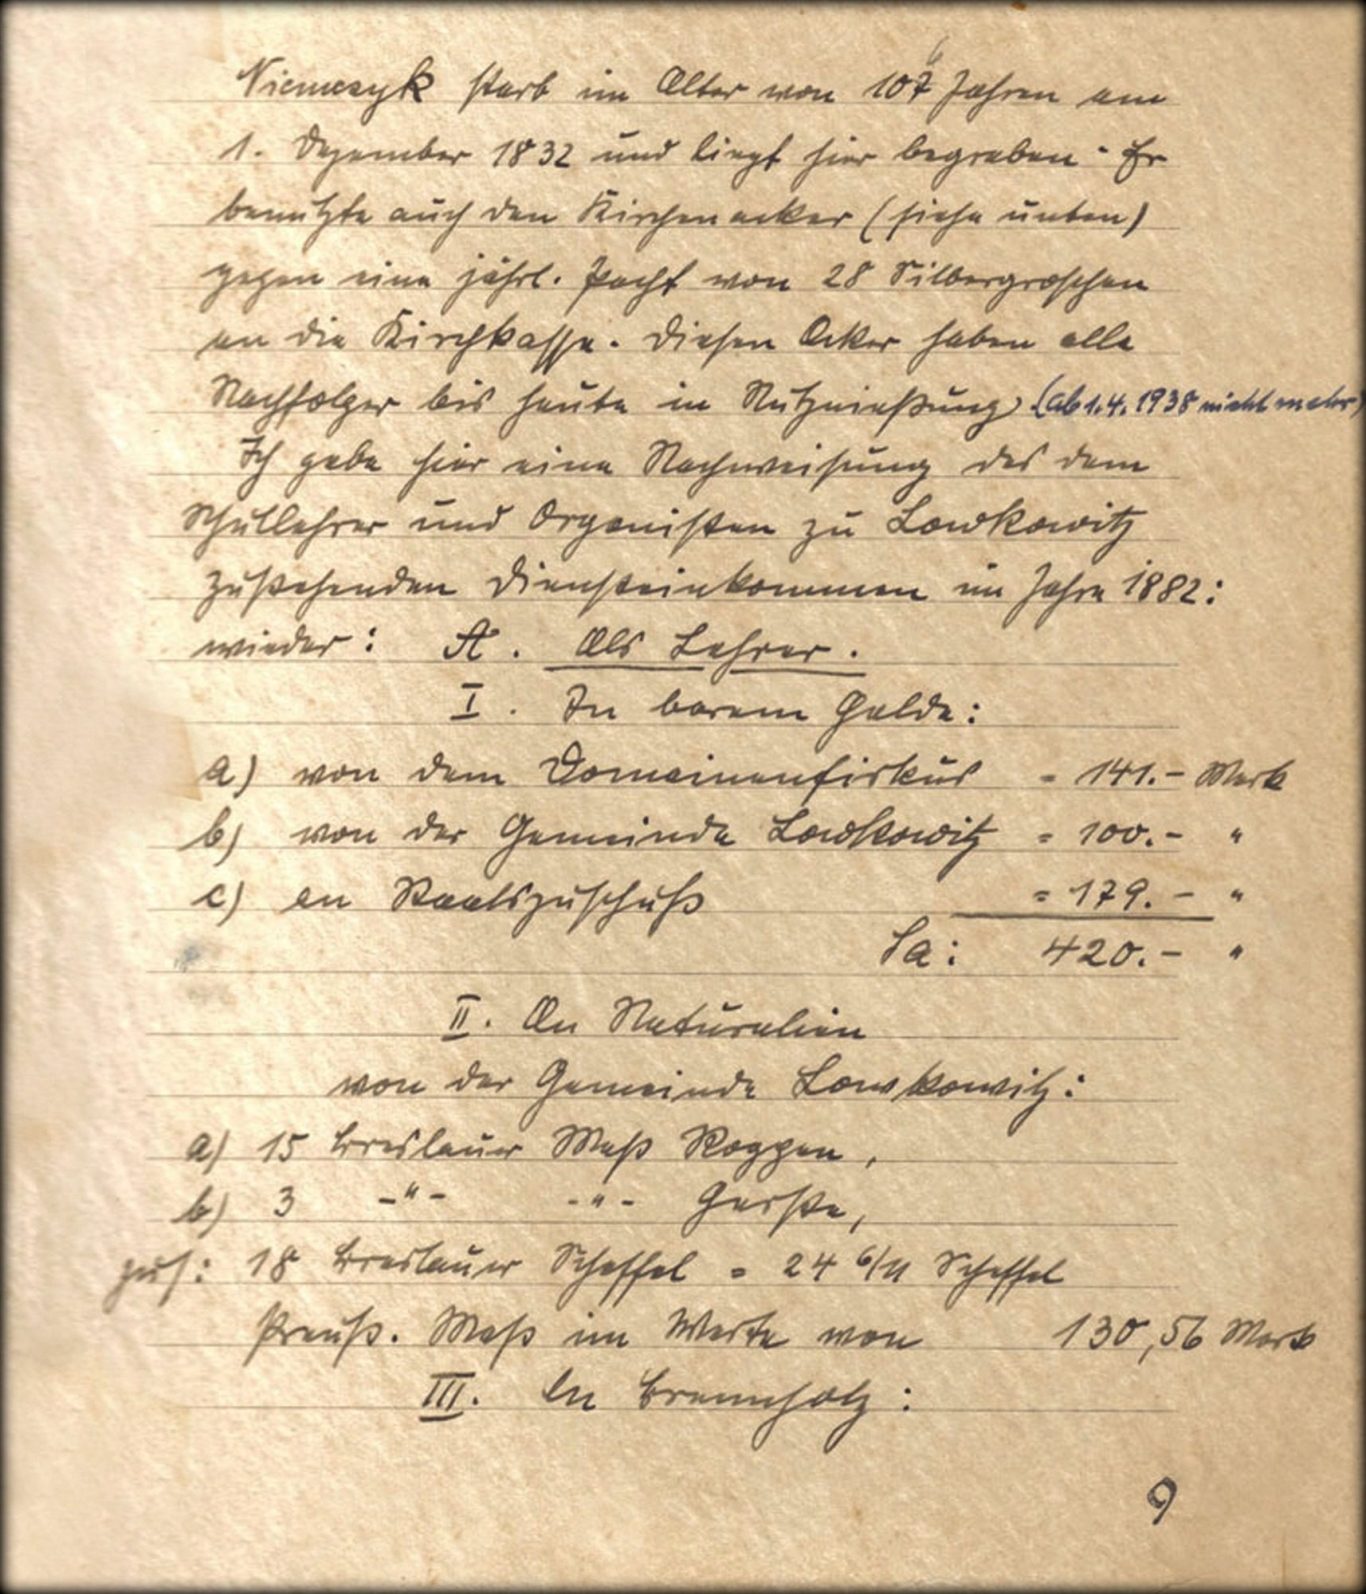 Niemczyk starb im Alter von 107 Jahren am
1. Dezember 1832 und liegt hier begraben. Er
benutzte auch den Kirchenacker (siehe unten)
gegen eine jährl. Pacht von 28 Silbergroschen
an die Kirchkasse. Diesen Acker haben alle
Nachfolger bis heute in Nutznießung. (ab 1.4.1938 nicht mehr)
Ich gebe hier eine Nachweisung des dem
Schullehrer und Organisten zu Lowkowitz
zustehenden Diensteinkommen im Jahre 1882:
wieder: A. Als Lehrer.
I. In barem Gelde:
a) von dem Domainenfiskus = 141.- Mark
b) von der Gemeinde Lowkowitz = 100.- "
c) an Staatszuschuß = 179.- "
Sa: 420.- "
II. An Naturalien
von der Gemeinde Lowkowitz:
a) 15 Breslauer Maß Roggen,
b) 3 -"- -"- Gerste,
zus: 18 Breslauer Scheffel = 24 6/11 Scheffel
Preuß. Maß im Werte von 130,56 Mark
III. An Brennholz:
9